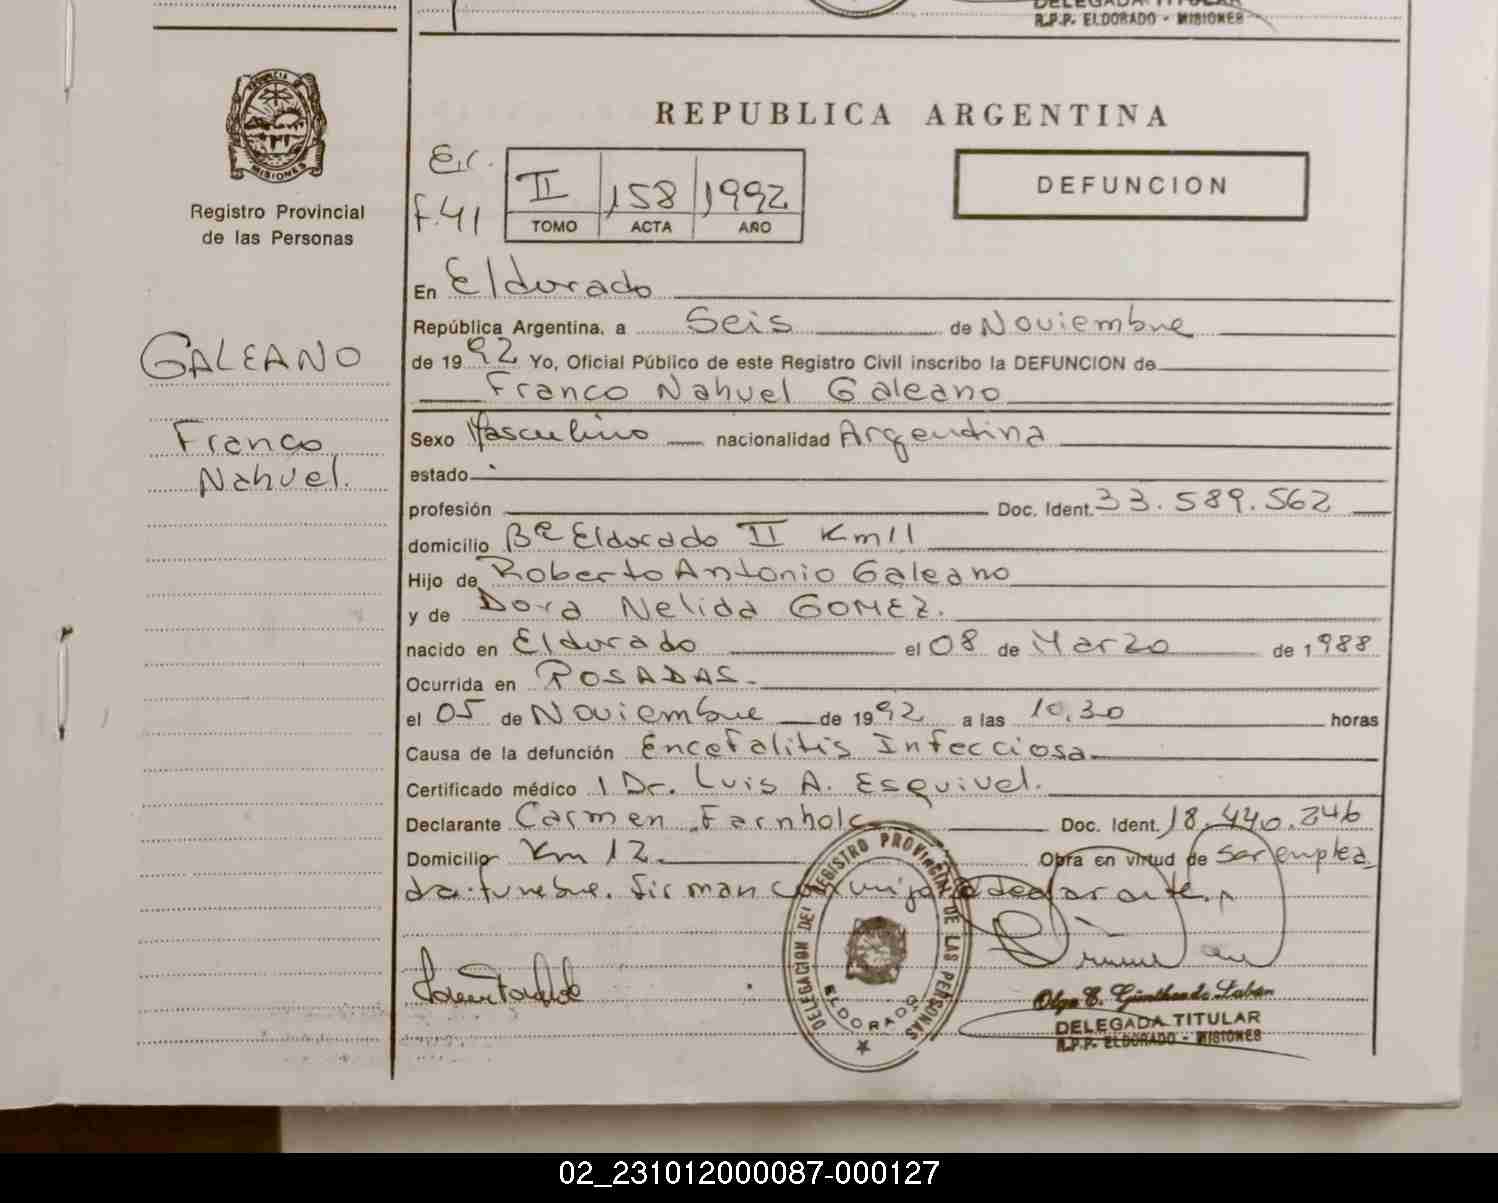 DELEGADA TITULAR
R.P.P. ELDORADO - MISIONES
PROVINCIA DE
MISIONES
Registro Provincial
de las Personas
GALEANO
Franco
Nahuel.
REPUBLICA ARGENTINA
f.41
II 158 1992
TOMO ACTA AÑO
DEFUNCION
En Eldorado
República Argentina, a Seis de Noviembre
de 1992 Yo, Oficial Público de este Registro Civil inscribo la DEFUNCION de
Franco Nahuel Galeano
Sexo Masculino nacionalidad Argentina
estado
profesión Doc. Ident. 33.589.562
domicilio Bº Eldorado II Km 11
Hijo de Roberto Antonio Galeano
y de Dora Nelida GOMEZ.
nacido en Eldorado el 08 de Marzo de 1988
Ocurrida en POSADAS.
el 05 de Noviembre de 1992 a las 10,30 horas
Causa de la defunción Encefalitis Infecciosa
Certificado médico Dr. Luis A. Esquivel.
Declarante Carmen Farnholc Doc. Ident. 18.440.246
Domicilio Km 12 Obra en virtud de ser emplea
da funebre. firman conmigo declarante.
DELEGACION DEL REGISTRO PROVINCIAL DE LAS PERSONAS
ELDORADO
Olga E. Günther de Laban
DELEGADA TITULAR
R.P.P. ELDORADO - MISIONES
02_231012000087-000127